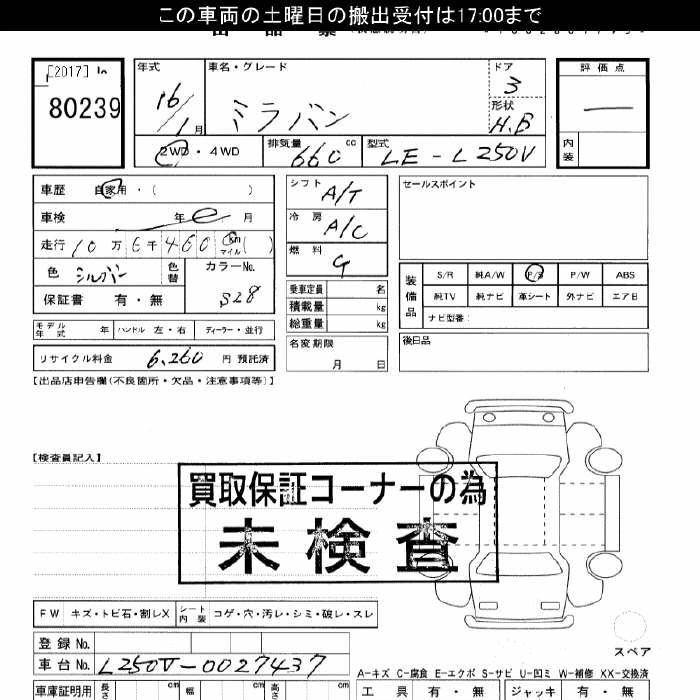 この車両の土曜日の搬出受付は17:00まで
[2017] In
80239
年式
16/1月
車名・グレード
ミラバン
ドア
3
形状
H.B
評価点
—
内装
2WD・4WD
排気量
660 cc
型式
LE-L250V
車歴 自家用・( )
車検 年 月
走行 10万6千460 km マイル ( )
色 シルバー 色替
カラーNo.
S28
保証書 有・無
モデル年式 年 ハンドル 左・右 ディーラー・並行
リサイクル料金 6,260 円 預託済
シフト A/T
冷房 A/C
燃料 G
乗車定員 名
積載量 kg
総重量 kg
名変期限
月 日
セールスポイント
装備品
S/R 純A/W P/S P/W ABS
純TV 純ナビ 革シート 外ナビ エアB
ナビ型番:
後日品
【出品店申告欄(不良箇所・欠品・注意事項等)】
【検査員記入】
買取保証コーナーの為
未検査
FW キズ・トビ石・割レX シート内装 コゲ・穴・汚レ・シミ・破レ・スレ
スペア
登録No.
車台No. L250V-0027437
A-キズ C-腐食 E-エクボ S-サビ U-凹ミ W-補修 XX-交換済
車庫証明用 長さ cm 幅 cm 高さ cm
工具 有・無 ジャッキ 有・無